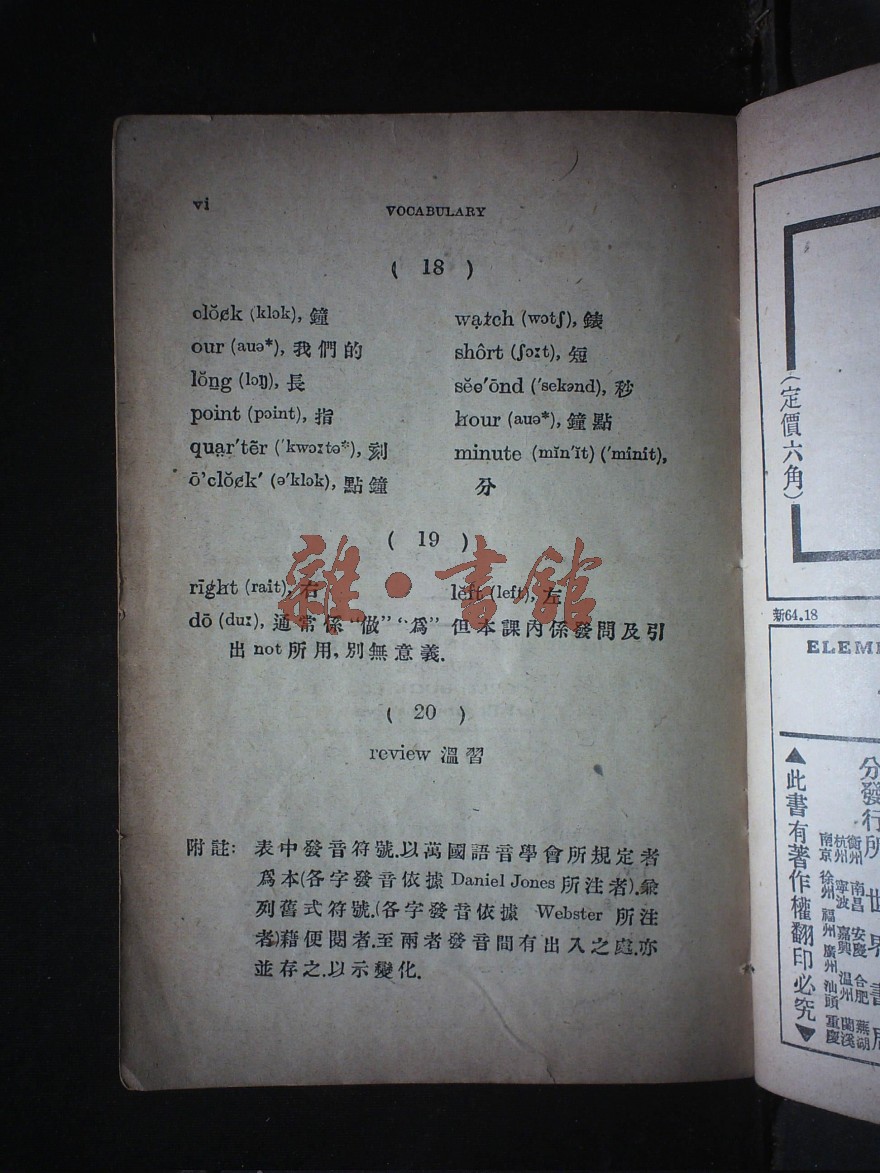 vi
VOCABULARY
( 18 )
clŏck (klɔk), 鐘
wạtch (wɔtʃ), 錶
our (auə*), 我們的
shôrt (ʃɔːt), 短
lŏng (lɔŋ), 長
sĕc'ŏnd ('sekənd), 秒
point (pɔint), 指
hour (auə*), 鐘點
quạr'tẽr ('kwɔːtə*), 刻
minute (mĭn'ĭt) ('minit),
分
ō'clŏck' (ə'klɔk), 點鐘
( 19 )
rīght (rait), 右
lĕft (left), 左
dō (duː), 通常係“做”“爲”但本課內係發問及引
出 not 所用, 別無意義.
( 20 )
review 溫習
附註: 表中發音符號,以萬國語音學會所規定者
爲本(各字發音依據 Daniel Jones 所注者),兼
列舊式符號,(各字發音依據 Webster 所注
者)藉便閱者.至兩者發音間有出入之處,亦
並存之,以示變化.
雜·書館
(定價六角)
新64.18
ELEME
▲此書有著作權翻印必究▼
分發行所
世界書局
衡州 南昌 安慶 合肥 蕪湖
杭州 寧波 嘉興 溫州 蘭溪
南京 徐州 福州 廣州 汕頭 重慶